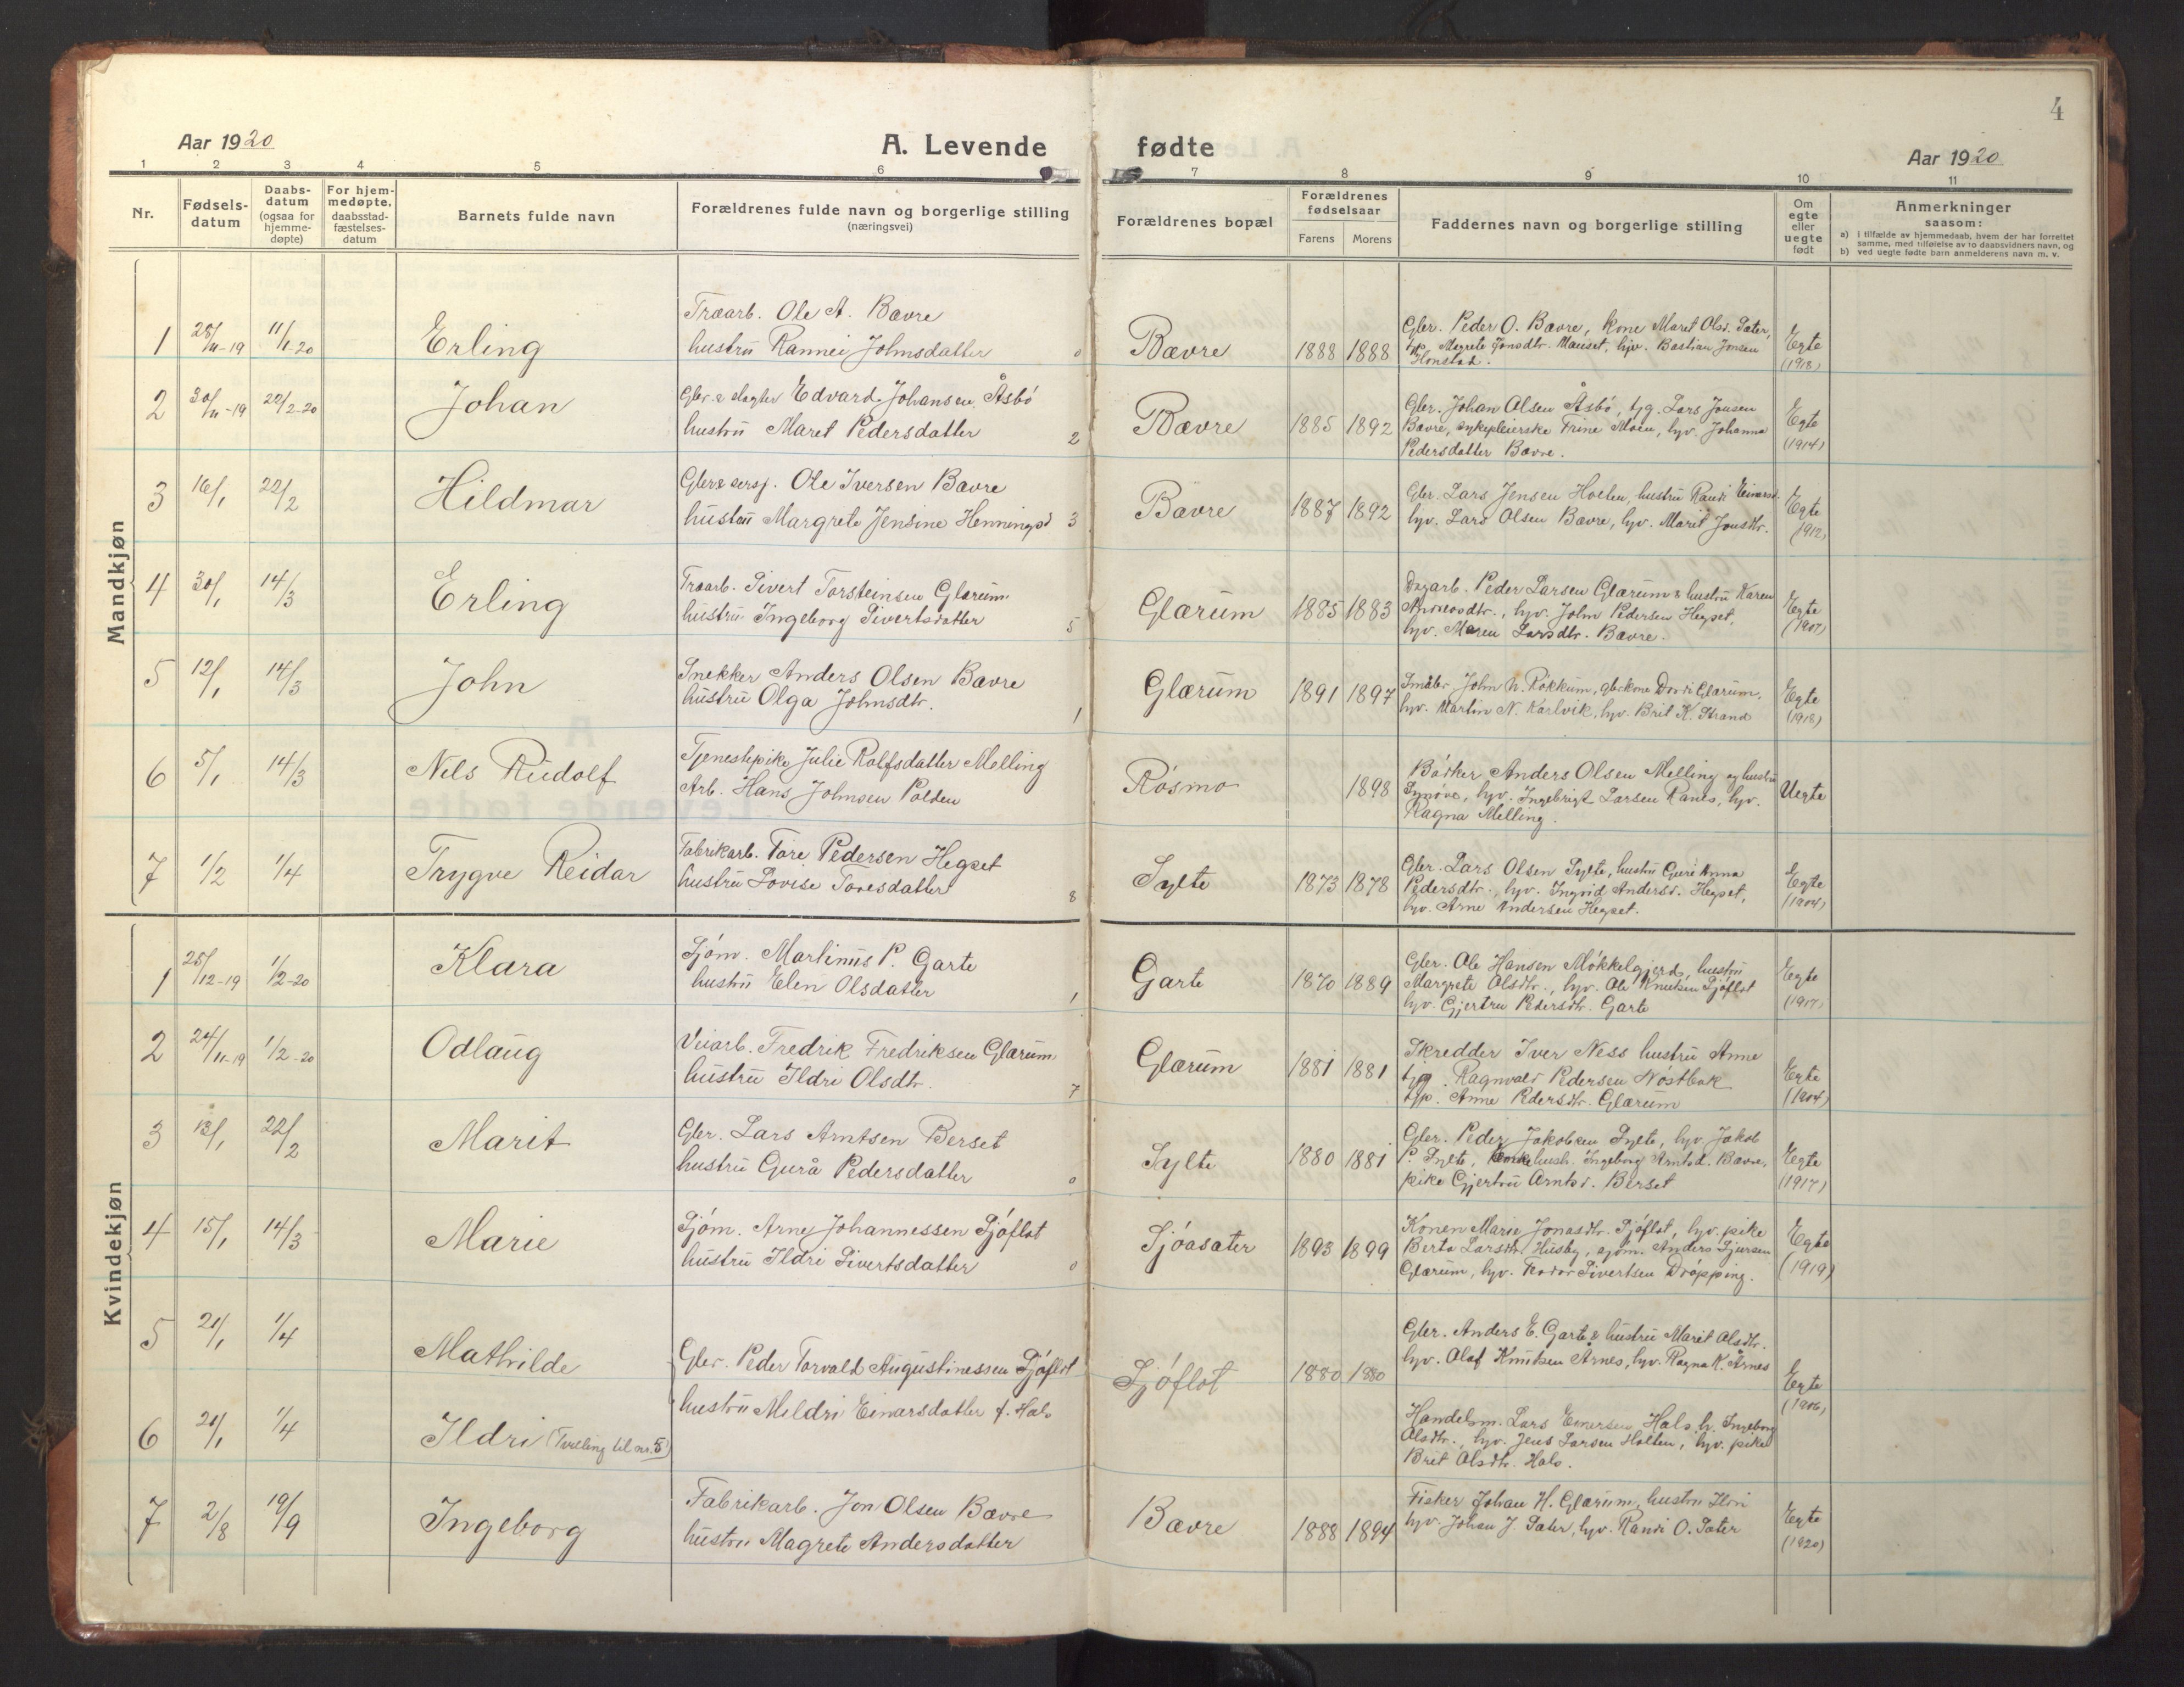 4
Aar 1920 A. Levende fødte Aar 1920
1 2 3 4 5 6 7 8 9 10 11
Nr.
Fødsels-
datum
Daabs-
datum
(ogsaa for
hjemme-
døpte)
For hjem-
medøpte,
daabsstad-
fæstelses-
datum
Barnets fulde navn
Forældrenes fulde navn og borgerlige stilling
(næringsvei)
Forældrenes bopæl
Forældrenes
fødselsaar
Farens Morens
Faddernes navn og borgerlige stilling
Om
egte
eller
uegte
født
Anmerkninger
saasom:
a) i tilfælde av hjemmedaab, hvem der har forrettet
samme, med tilføielse av to daabsvidners navn, og
b) ved uegte fødte barn anmelderens navn m. v.
Mandkjøn
1 28/11-19 11/1-20 Erling
Træarb. Ole A. Bævre
hustru Rannei Johnsdatter 0
Bævre 1888 1888
Gbr. Peder O. Bævre, kone Maret Olsd. Sæter,
Magrete Jonsdtr. Mauset, hjv. Bastian Jonsen
Honstad.
Egte
(1918)
2 30/11-19 22/2-20 Johan
Gbr. & slagter Edvard Johansen Åsbö
hustru Maret Pedersdatter 2
Bævre 1885 1892
Gbr. Johan Olsen Åsbö, tjg. Lars Jonsen
Bævre, sykepleierske Trine Moen, hjv. Johanna
Pedersdatter Bævre.
Egte
(1914)
3 16/1 22/2 Hildmar
Gbr & sersj. Ole Iversen Bævre
hustru Margrete Jensine Henningsd 3
Bævre 1887 1892
Gbr. Lars Jensen Holten, hustru Randi Einarsd.
hjv. Lars Olsen Bævre, hjv. Marit Jonsdtr.
Egte
(1912)
4 30/1 14/3 Erling
Træarb. Sivert Torsteinsen Glærum
hustru Ingeborg Sivertsdatter 5
Glærum 1885 1883
Dagarb. Peder Larsen Glærum & hustru Karen
Andreasdtr., hjv. John Pedersen Hegset,
hjv. Maren Larsdtr. Bævre.
Egte
(1907)
5 12/1 14/3 John
Snekker Anders Olsen Bævre
hustru Olga Johnsdtr. 1
Glærum 1891 1897
Småbr. John N. Røkkum, gbr.kone Dordi Glærum,
hjv. Martin N. Karlvik, hjv. Brit K. Strand
Egte
(1918)
6 5/1 14/3 Nils Rudolf
Tjenestepike Julie Rolfsdatter Melling
Arb. Hans Johnsen Polden
Røsmo 1898
Bödker Anders Olsen Melling og hustru
Synöve, hjv. Ingebrigt Larsen Ranes, hjv.
Ragna Melling.
Uegte
7 1/2 1/4 Trygve Reidar
Fabrikarb. Tore Pedersen Hegset
hustru Lovise Toresdatter 8
Sylte 1873 1878
Gbr. Lars Olsen Sylte, hustru Guri Anna
Pedersdtr., hjv. Ingrid Andersd. Hegset,
hjv. Arne Andersen Hegset.
Egte
(1904)
Kvindekjøn
1 25/12-19 1/2-20 Klara
Sjöm. Martinus P. Garte
hustru Elen Olsdatter 1
Garte 1870 1889
Gbr. Ole Hansen Mökkelgjerd, hustru
Margrete Olsdtr., hjv. Ole Knutsen Sjöflot
hjv. Gjertru Pedersdtr. Garte
Egte
(1917)
2 24/11-19 1/2-20 Odlaug
Veiarb. Fredrik Fredriksen Glærum
hustru Ildri Olsdtr. 7
Glærum 1881 1881
Skredder Iver Ness hustru Anne
tjg. Ragnvald Pedersen Nöstbak
tjp. Anne Pedersdtr. Glærum
Egte
(1904)
3 13/1 22/2 Marit
Gbr. Lars Arntsen Berset
hustru Gurå Pedersdatter 0
Sylte 1880 1881
Gbr. Peder Jakobsen Sylte, hjv. Jakob
P. Sylte, Ingeborg Arntsd. Bævre,
pike Gjertru Arntsd. Berset
Egte
(1917)
4 15/1 14/3 Marie
Sjöm. Arne Johannessen Sjöflot
hustru Ildri Sivertsdatter 0
Sjöasæter 1893 1899
Konen Marie Jonasdtr. Sjöflot, hjv. pike
Berta Larsdtr. Husby, sjöm. Anders Sjursen
Glærum, hjv. Sivertsen Dröpping.
Egte
(1919)
5 21/1 1/4 Mathilde
Gbr. Peder Torvald Augustinessen Sjöflot
hustru Meldri Einarsdatter f. Hals
Sjöflot 1880 1880
Gbr. Anders E. Garte & hustru Marit Olsdtr.
hjv. Olaf Knutsen Årnes, hjv. Ragna K. Årnes
Egte
(1906)
6 21/1 1/4 Ildri (Tvilling til nr. 5)
Handelsm. Lars Einersen Hals, h. Ingeborg
Olsdtr., hjv. Jens Larsen Holten, hjv. pike
Brit Olsdtr. Hals.
7 2/8 19/9 Ingeborg
Fabrikarb. Jon Olsen Bævre
hustru Magrete Andersdatter
Bævre 1888 1894
Fisker Johan H. Glærum, hustru Ildri
hjv. Johan J. Sæter, hjv. Randi O. Sæter
Egte
(1920)